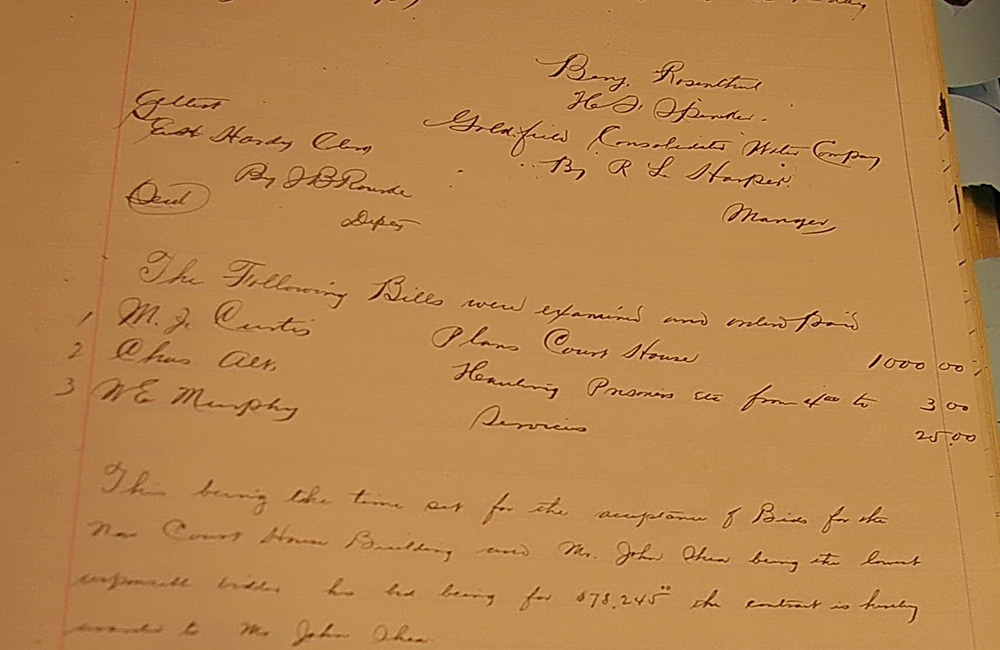 Benj. Rosenthal
H. T. Spencker.
Attest
Goldfield Consolidated Water Company
Hardy Clerk
By R L Harper.
By J B Rourke
Manger
Deputy
The Following Bills were examined and orderd Paid
1 M. J. Curtis Plans Court House 1000 00
2 Chas Hauling Prisoners etc from to 3 00
3 WE Murphy Services 25.00
This being the time set for the acceptance of Bids for the
New Court House Building and Mr. John Shea being the lowest
responsible bidder his bid being for $78,245 00 the contract is hereby
awarded to Mr John Shea.